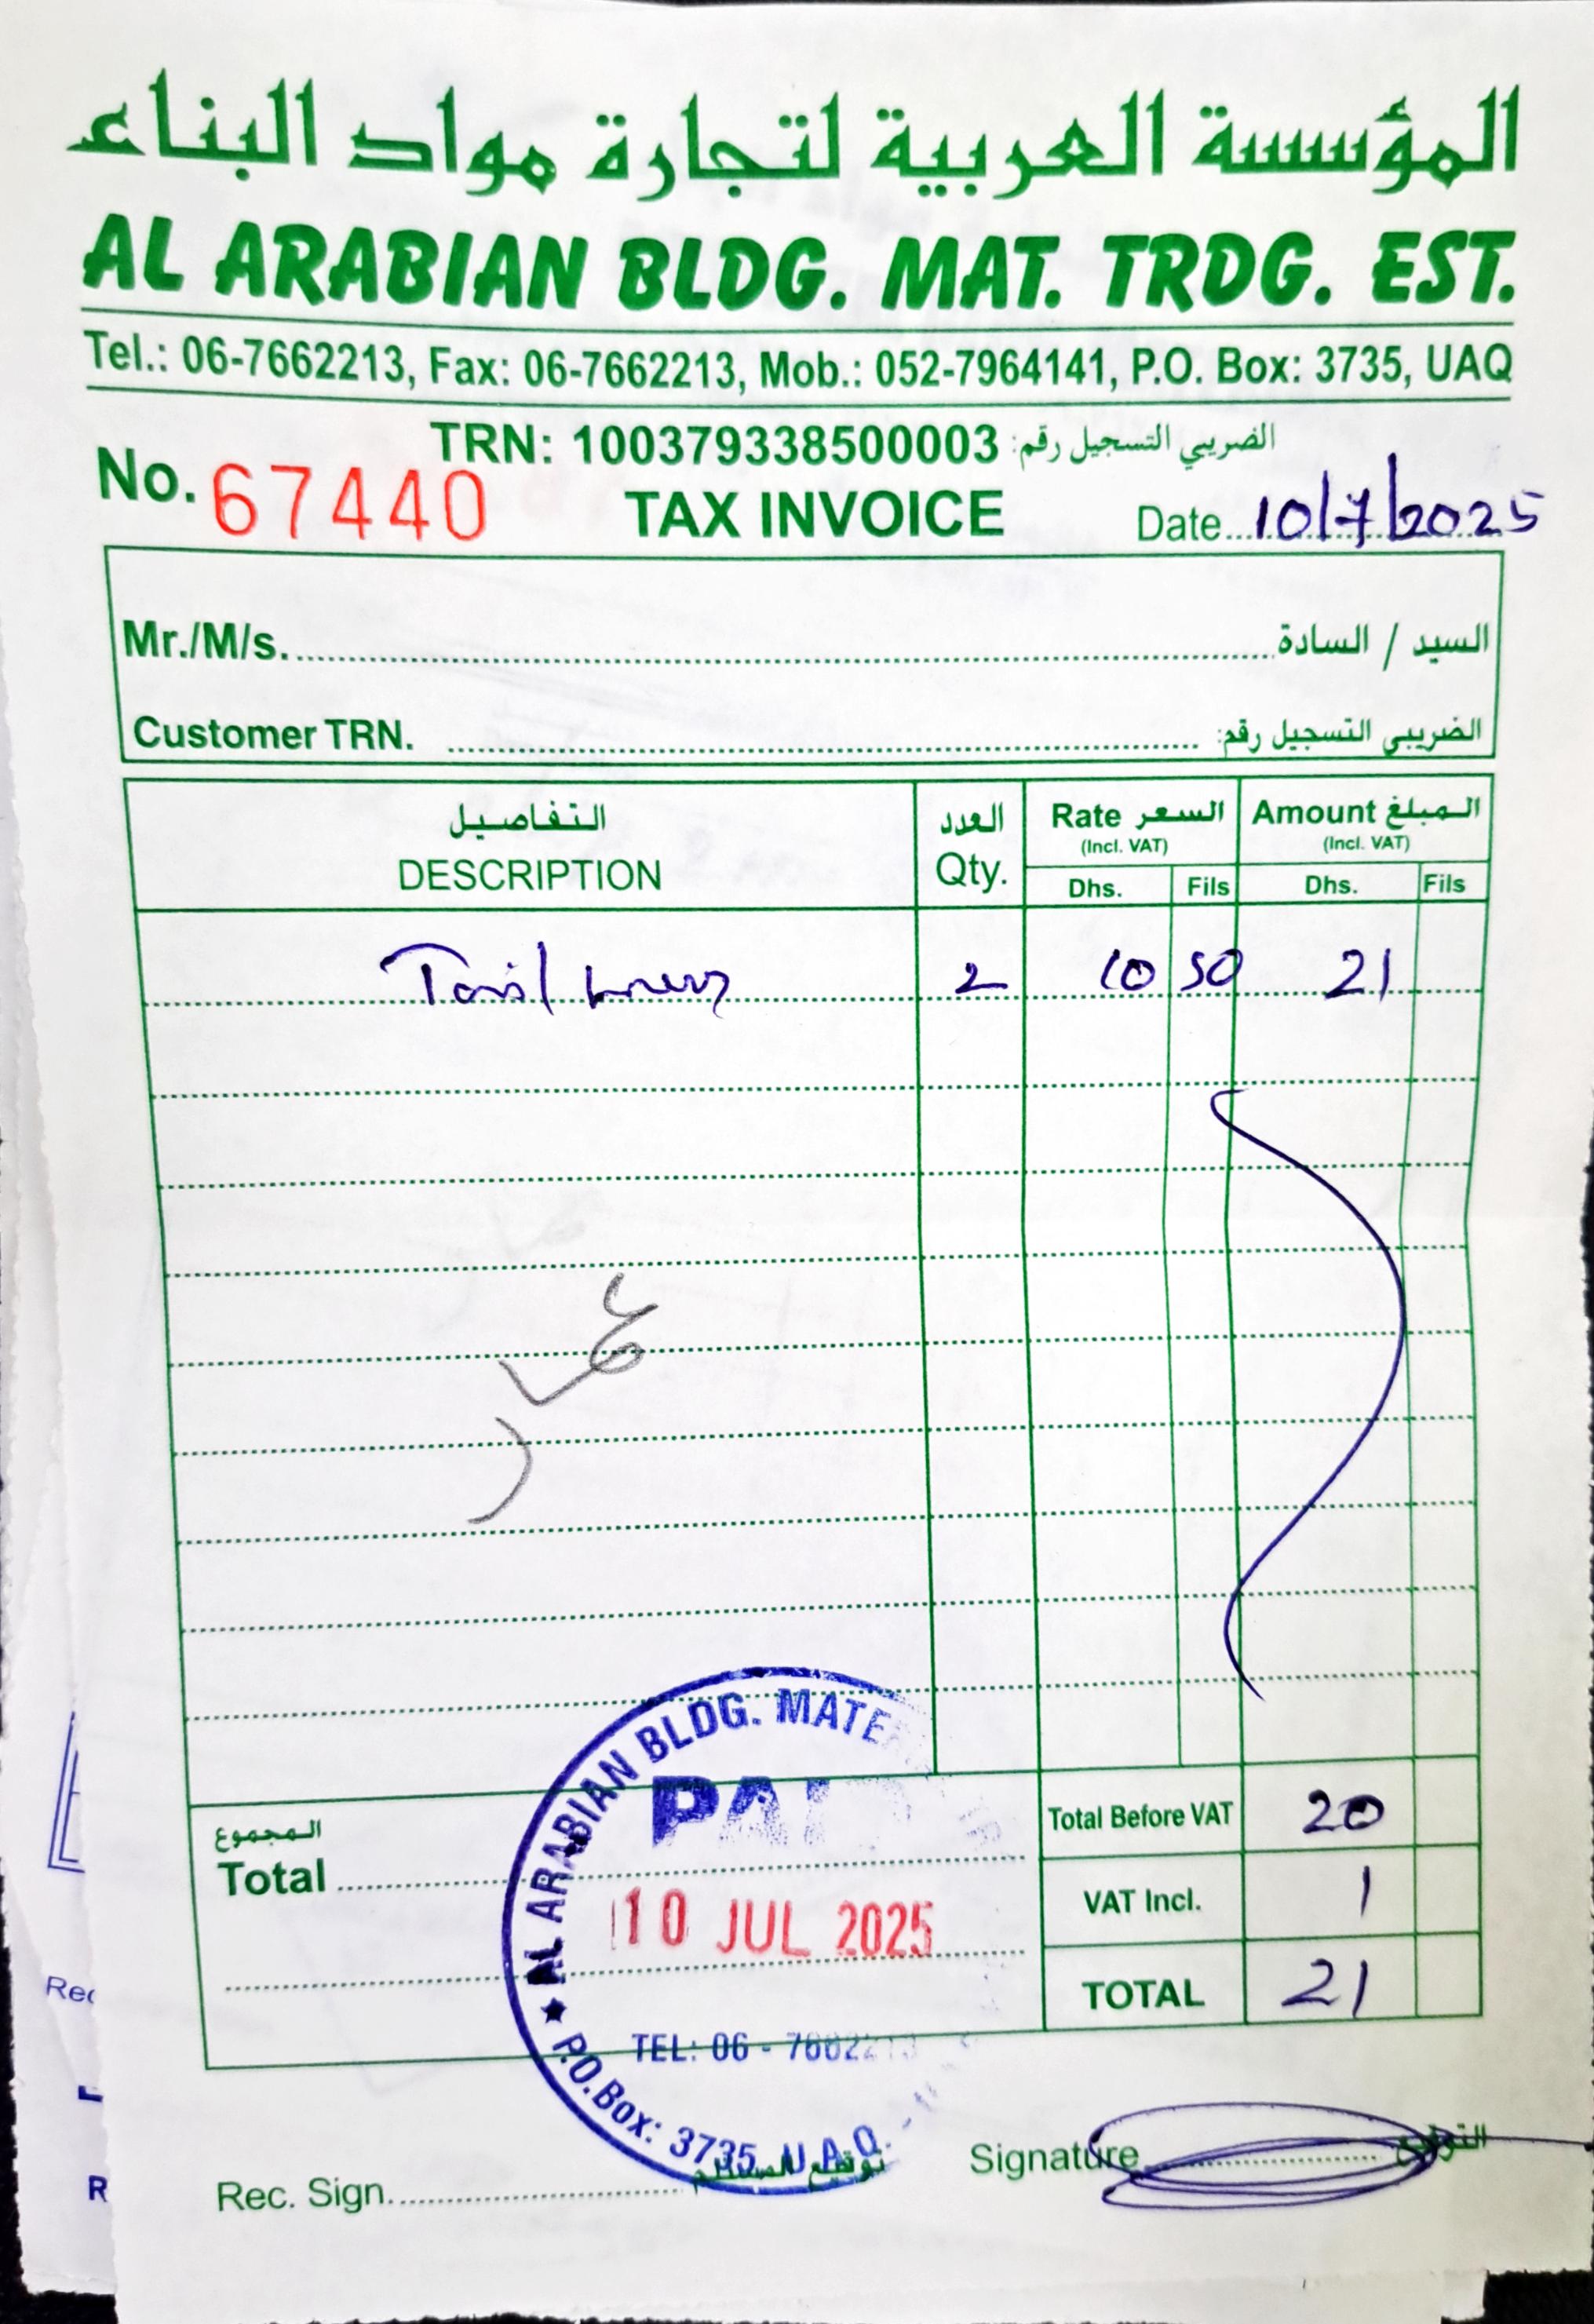 المؤسسة العربية لتجارة مواد البناء
AL ARABIAN BLDG. MAT. TRDG. EST.
Tel.: 06-7662213, Fax: 06-7662213, Mob.: 052-7964141, P.O. Box: 3735, UAQ
TRN: 100379338500003 الضريبي التسجيل رقم:
No. 67440 TAX INVOICE Date 10/7/2025
Mr./M/s. السيد / السادة
Customer TRN. الضريبي التسجيل رقم:
التفاصيل العدد Rate السعر Amount المبلغ
DESCRIPTION Qty. (Incl. VAT) (Incl. VAT)
Dhs. Fils Dhs. Fils
2 10 50 21
المجموع Total Before VAT 20
Total
VAT Incl. 1
TOTAL 21
AL ARABIAN BLDG.
PAI
10 JUL 2025
TEL: 06 - 7662213
P.O.Box: 3735, U.A.Q.
Rec. Sign. توقيع المستلم Signature